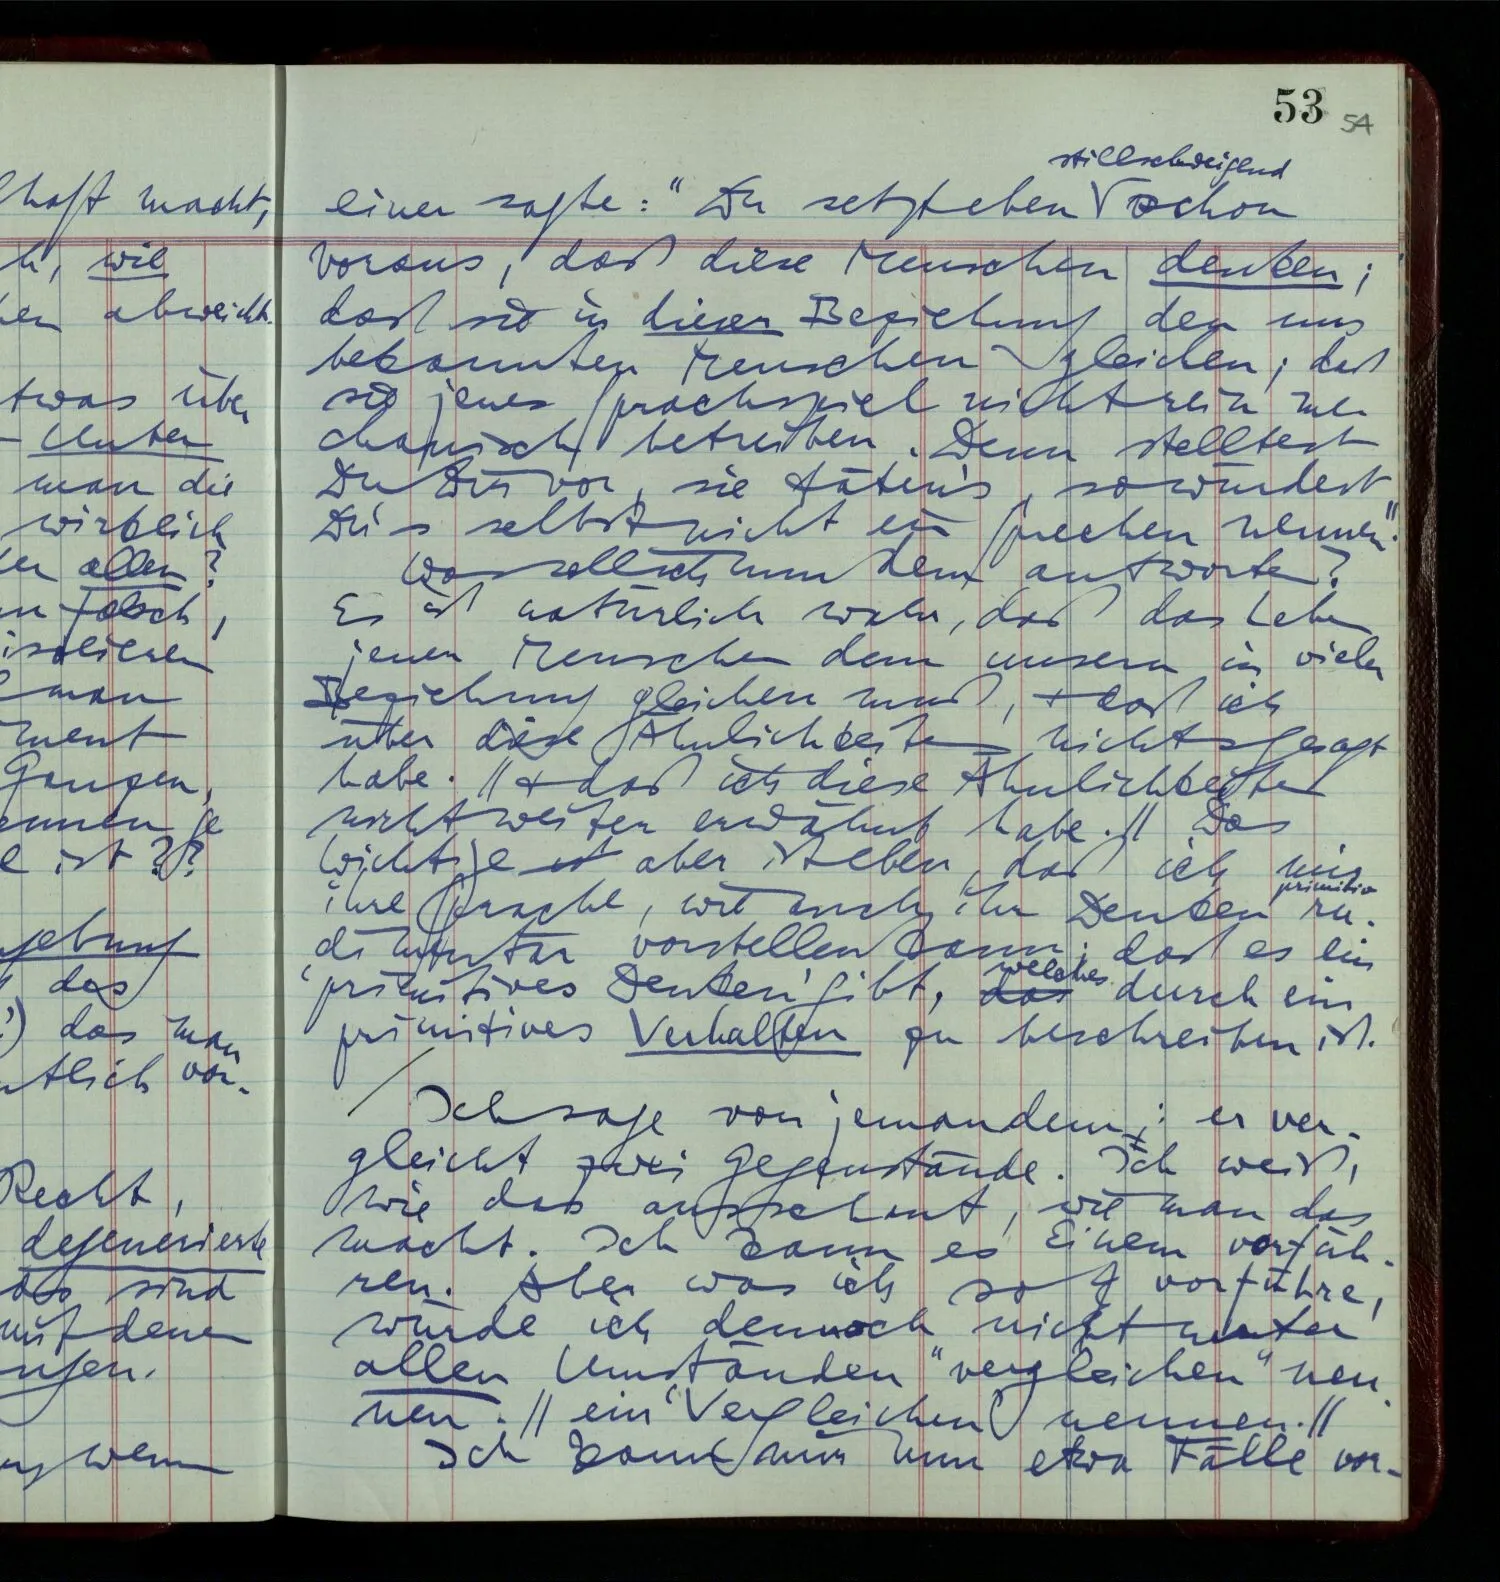 lhaft macht,
wie
abweicht.
etwas über
- Unter
man die
wirklich
allen?
falsch,
isolieren
man
ment
Ganzen,
je
e ist??
gebung
das
das man
ntlich vor-
Recht,
degenerierte
das sind
mit denen
ngen.
wenn
53 54
stillschweigend
einer sagte: "Du setzt eben schon
voraus, daß diese Menschen denken;
daß sie in dieser Beziehung den uns
bekannten Menschen gleichen; daß
sie jenes Sprachspiel nicht rein me-
chanisch betreiben. Denn stelltest
Du Dir vor, sie täten's, so würdest
Du's selbst nicht ein Sprechen nennen."
Was soll ich nun dem antworten?
Es ist natürlich wahr, daß das Leben
jener Menschen dem unsern in vieler
Beziehung gleichen muß, + daß ich
über diese Ähnlichkeiten nichts gesagt
habe. // + daß ich diese Ähnlichkeiten
nicht weiter erwähnt habe. // Das
Wichtige ist aber ist eben, daß ich mir
primitiv
ihre Sprache, wie auch ihr Denken ru-
dimentär vorstellen kann; daß es ein
welches
'primitives Denken' gibt, das durch ein
primitives Verhalten zu beschreiben ist.
/
Ich sage von jemandem: er ver-
gleicht zwei Gegenstände. Ich weiß,
wie das ausschaut, wie man das
macht. Ich kann es Einem vorfüh-
ren. Aber was ich so vorführe,
würde ich dennoch nicht unter
allen Umständen "vergleichen" nen-
nen. // ein 'Vergleichen' nennen. //
Ich kann mir nun etwa Fälle vor-